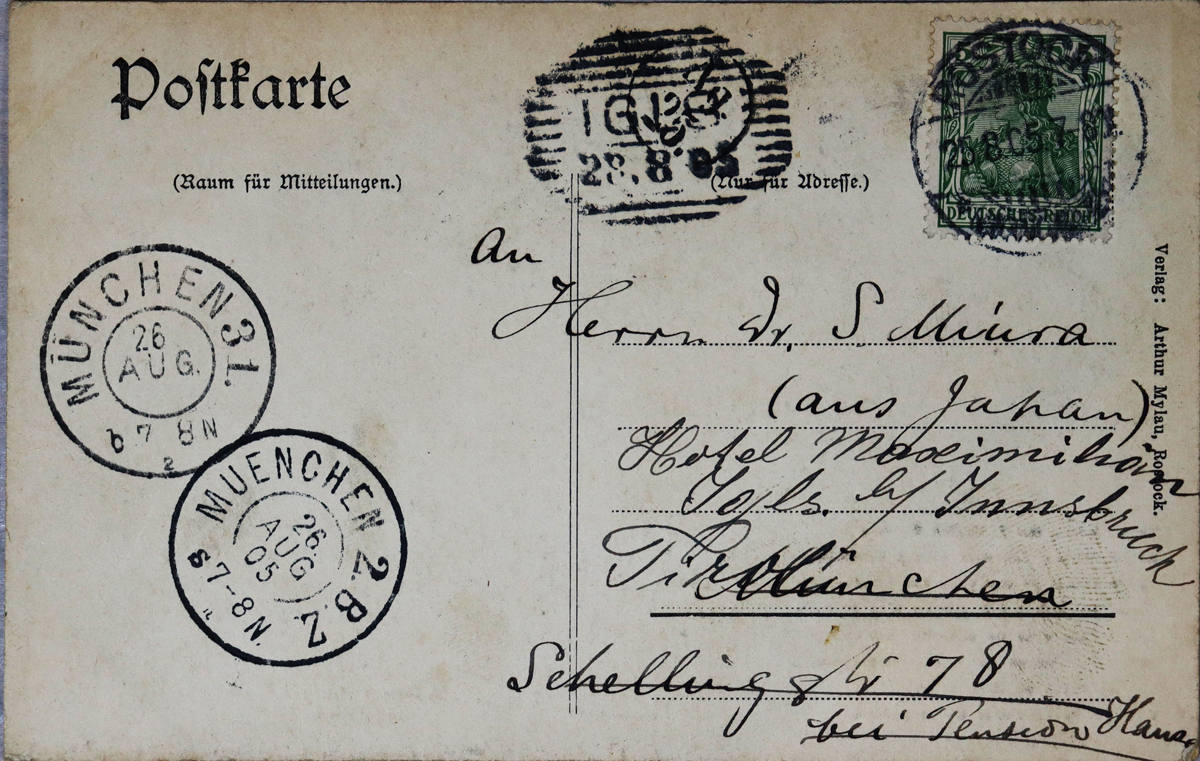 Postkarte
(Raum für Mitteilungen.)
(Nur für Adresse.)
IGLS
28.8.05
ROSTOCK
25.8.05.7
DEUTSCHES REICH
An
Herrn Dr. S. Miura
(aus Japan)
Hotel Maximilian
Igls. b/ Innsbruck
Tirol
München
Schellingstr 78
bei Pension Haus
Verlag: Arthur Mylau, Rostock.
MÜNCHEN 31.
26
AUG.
7 8 N
2
MUENCHEN 2 B.Z.
26.
AUG
05
7-8 N.